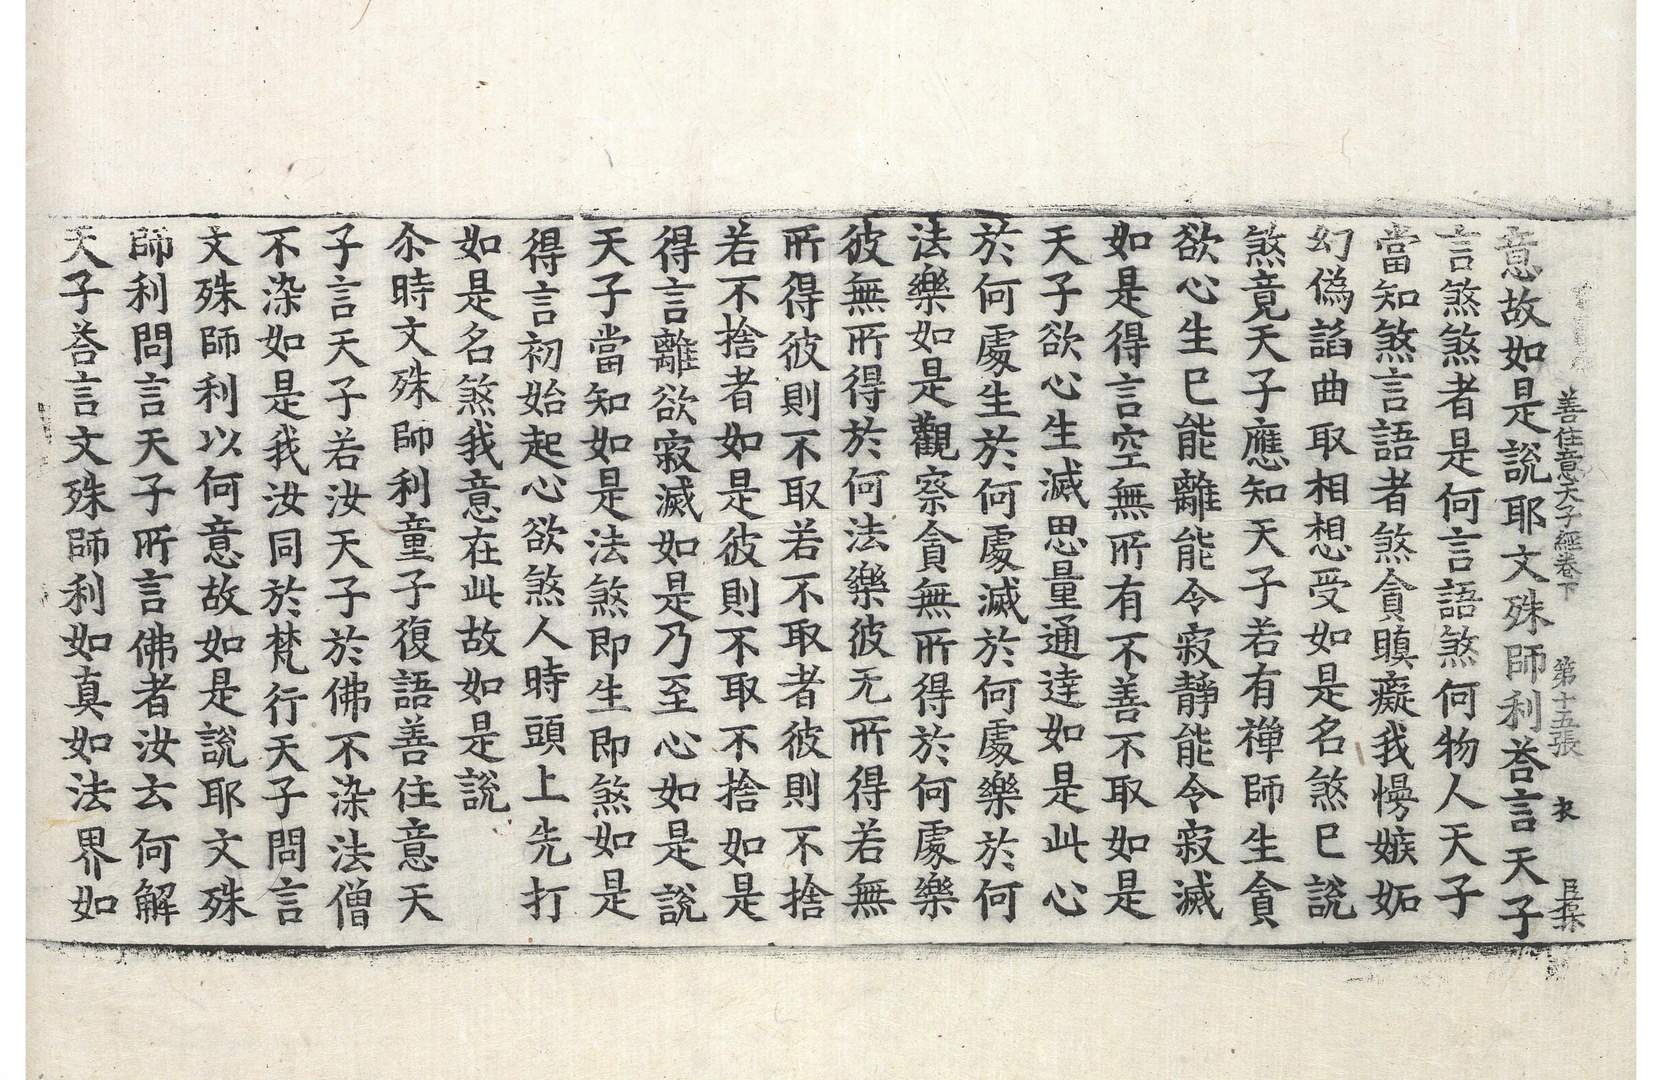 善住意天子經卷下　第十五張　衣
意故如是說耶文殊師利荅言天子
言煞煞者是何言語煞何物人天子
當知煞言語者煞貪瞋癡我慢嫉妬
幻偽諂曲取相想受如是名煞已說
煞竟天子應知天子若有禅師生貪
欲心生已能離能令寂靜能令寂滅
如是得言空無所有不善不取如是
天子欲心生滅思量通達如是此心
於何處生於何處滅於何處樂於何
法樂如是觀察貪無所得於何處樂
彼無所得於何法樂彼无所得若無
所得彼則不取若不取者彼則不捨
若不捨者如是彼則不取不捨如是
得言離欲寂滅如是乃至心如是說
天子當知如是法煞即生即煞如是
得言初始起心欲煞人時頭上先打
如是名煞我意在此故如是說
尒時文殊師利童子復語善住意天
子言天子若汝天子於佛不染法僧
不染如是我汝同於梵行天子問言
文殊師利以何意故如是說耶文殊
師利問言天子所言佛者汝云何解
天子荅言文殊師利如真如法界如